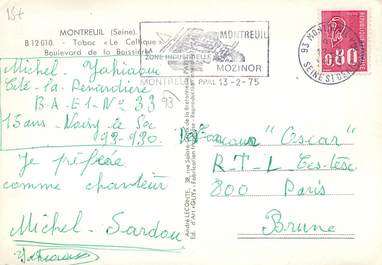 15t
MONTREUIL (Seine).
B12010. - Tabac « Le Celtique »
Boulevard de la Boissière
MONTREUIL
ZONE INDUSTRIELLE
MOZINOR
MONTREUIL PPAL 13-2-75
93 MONTREUIL
SEINE ST DENIS
0,80
Michel Yahiaoue
Cité la Renardière
B-A-E1-N° 33 93
13 ans Noisy le Sec
93-930.
Je préfère
comme chanteur
Michel Sardou
André LECONTE, 38, rue Sainte-Croix-de-la-Bretonnerie, Paris
Ed. d'Art « GUY » Fabrication Française - Reproduction
concour "Oscar"
R-T-L
800 Paris
Brune